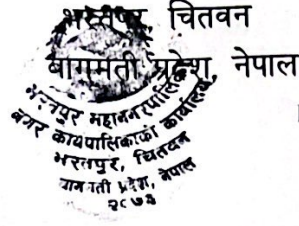 भरतपुर, चितवन
बागमती प्रदेश, नेपाल
भरतपुर महानगरपालिका
नगर कार्यपालिकाको कार्यालय,
भरतपुर, चितवन
बागमती प्रदेश, नेपाल
२०७३